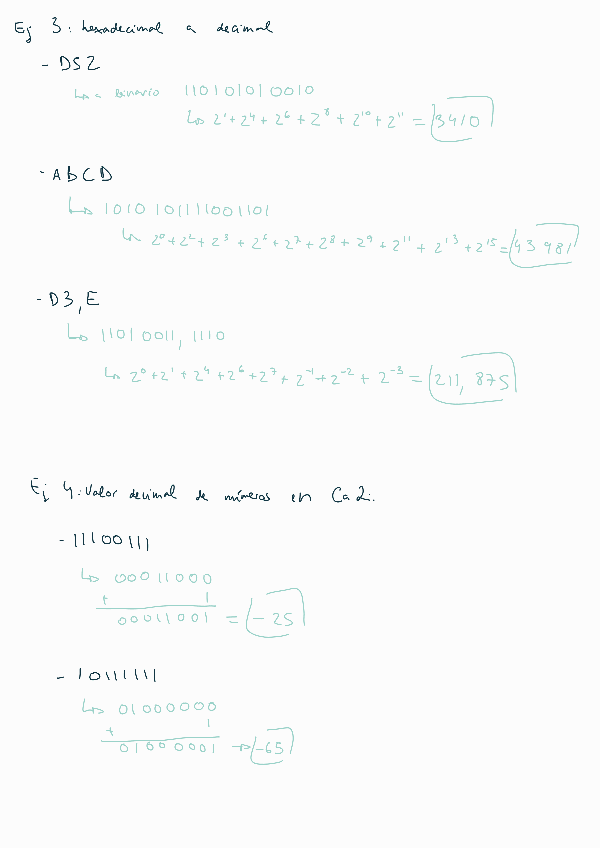 Ej 3: hexadecimal a decimal
- D52
↳ a binario 110101010010
↳ 2¹+2⁴+2⁶+2⁸+2¹⁰+2¹¹ = 3410
- ABCD
↳ 1010 101111001101
↳ 2⁰+2²+2³+2⁶+2⁷+2⁸+2⁹+2¹¹+2¹³+2¹⁵=43 981
- D3,E
↳ 1101 0011, 1110
↳ 2⁰+2¹+2⁴+2⁶+2⁷+2⁻¹+2⁻²+2⁻³ = 211, 875
Ej 4: Valor decimal de números en Ca2:
- 11100111
↳ 00011000
+ 1
00011001 = -25
- 10111111
↳ 01000000
+ 1
01000001 → -65